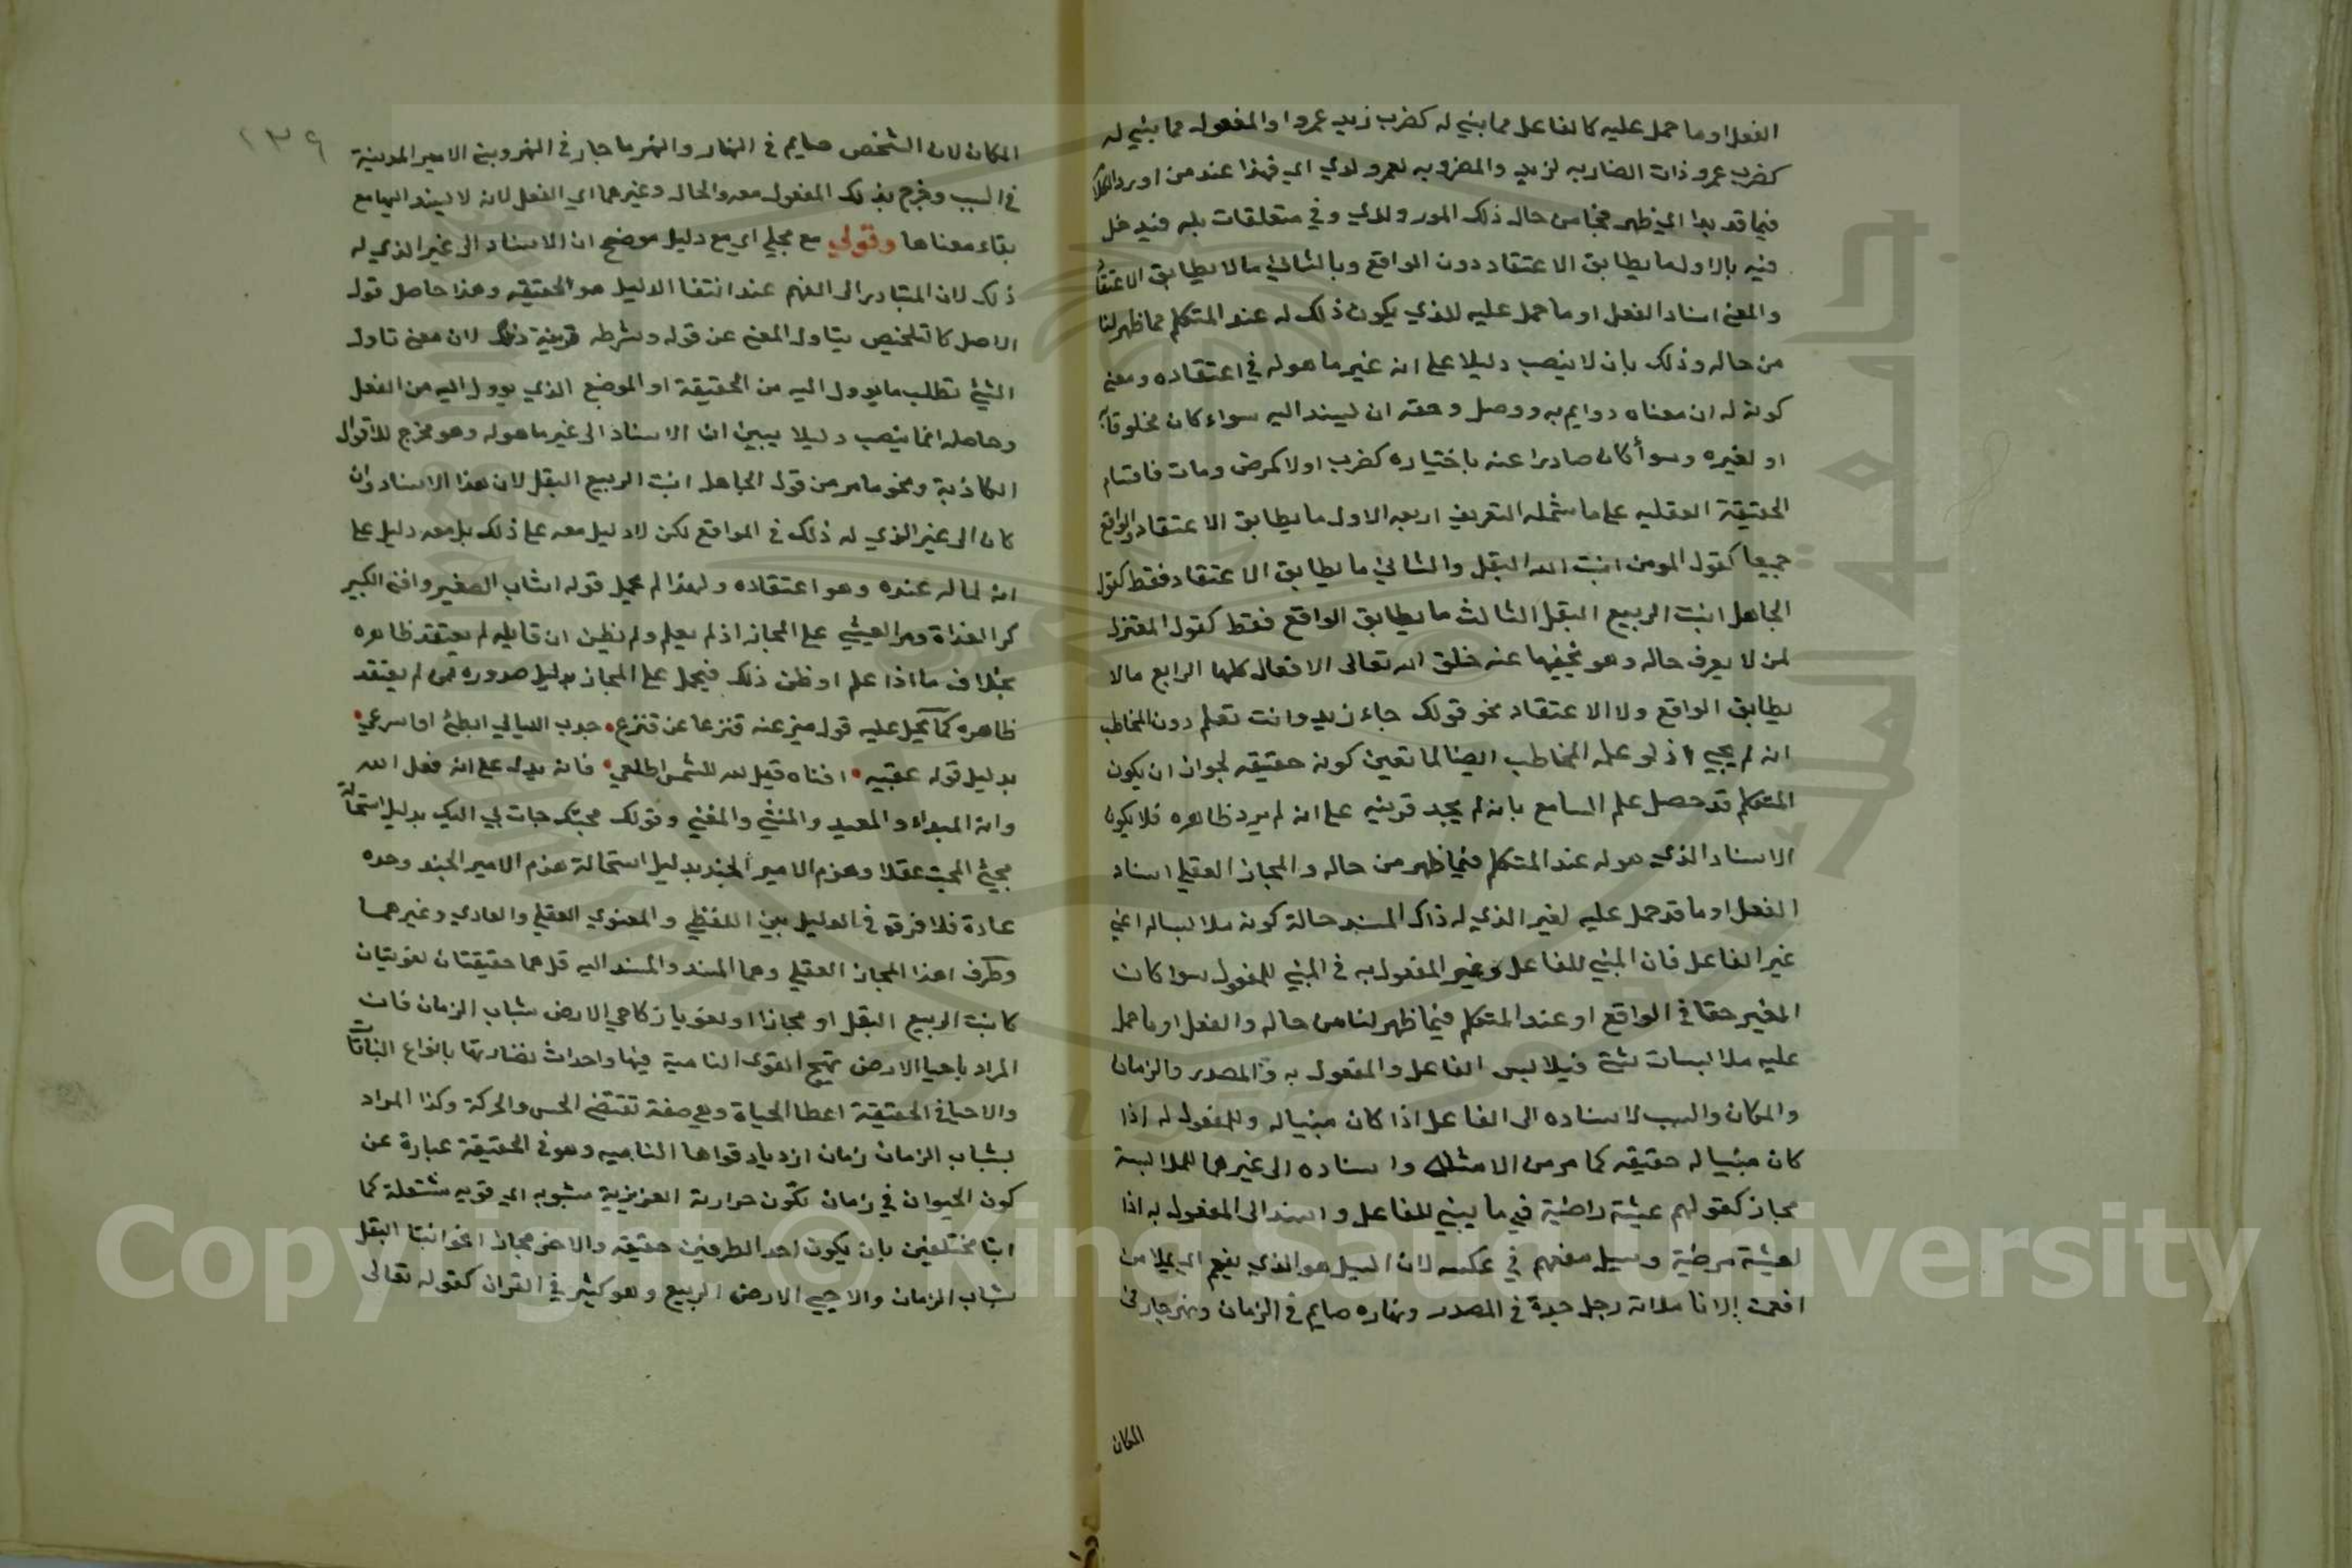 الفعل او ما حمل عليه كالفاعل مما بني له كضرب زيد عمروا والمفعول مما بني له
كضرب عمرو ذات الضاربه لزيد والمضروبه لعمرو لدي اي فهذا عند من اورد الكلام
فيما قد بدا اي ظهر من حال ذلك المورد ولدي وفي متعلقات بله فيدخل
فيه بالاول ما يطابق الاعتقاد دون الواقع وبالثاني ما لا يطابق الاعتقاد
والمعنى اسناد الفعل او ما حمل عليه للذي يكون ذلك له عند المتكلم مما ظهر لنا
من حاله وذلك بان لا ينصب دليلا على انه غير ما هو له في اعتقاده ومعنى
كونه له ان معناه دوايم به ووصل وحقه ان يسند اليه سواء كان مخلوقا
او لغيره وسوأ كان صادرا عنه باختياره كضرب اولا كمرض ومات فاقسام
الحقيقة العقليه على ما شمله التعريف اربعه الاول ما يطابق الاعتقاد والواقع
جميعا كقول المومن انبت الله البقل والثاني ما يطابق الاعتقاد فقط كقول
الجاهل انبت الربيع البقل الثالث ما يطابق الواقع فقط كقول المعتزل
لمن لا يعرف حاله وهو يخفيها عنه خلق الله تعالى الافعال كلها الرابع مالا
يطابق الواقع ولا الاعتقاد نحو قولك جاء زيد وانت تعلم دون المخاطب
انه لم يجي اذ لو علمه المخاطب ايضا لما تعين كونه حقيقه لجواز ان يكون
المتكلم قد حصل علم السامع بانه لم يجد قرينه على انه لم يرد ظاهره فلا يكون
الاسناد الذي هو له عند المتكلم فيما ظهر من حاله والمجاز العقلي اسناد
الفعل او ما قد حمل عليه لغير الذي له ذاك المسند حالة كونه ملابسا له اعني
غير الفاعل فان المبني للفاعل وغير المفعول به في المبني للمفعول سوا كان
الغير حقا في الواقع او عند المتكلم فيما ظهر لنا من حاله والفعل او ما حمل
عليه ملابسات شتى فيلابس الفاعل والمفعول به والمصدر والزمان
والمكان والسبب لاسناده الى الفاعل اذا كان مبنيا له وللمفعول له اذا
كان مبنيا له حقيقه كما مر من الامثله واسناده الى غيرهما للملابسة
مجاز كقولهم عيشة راضية في ما يبني للفاعل واسند الى المفعول به اذا
لعيشة مرضية وسيل مفعم في عكسه لان السيل هو الذي يفعم اي يملا من
افعمت الانا ملاته رجل جدة في المصدر ونهاره صايم في الزمان ونهر جار في
المكان
١٣٩
المكان لان الشخص صايم في النهار والنهر ما جار في النهر وبنى الامير المدينة
في السبب وخرج بذلك المفعول معه والحال وغيرهما اي الفعل لانه لا يسند اليها مع
بقاء معناها وقولي مع مجلي اي مع دليل موضح ان الاسناد الى غير الذي له
ذلك لان المتبادر الى الفهم عند انتفا الدليل هو الحقيقه وهذا حاصل قول
الاصل كالتلخيص بتاول المغني عن قوله وشرطه قرينة ذلك لان معنى تاول
الشيئ تطلب ما يوول اليه من الحقيقة او الموضع الذي يوول اليه من الفعل
وحاصله انما ينصب دليلا يبين ان الاسناد الى غير ما هو له وهو مخرج للاقوال
الكاذبة ونحو ما مر من قول الجاهل انبت الربيع البقل لان هذا الاسناد وان
كان الى غير الذي له ذلك في الواقع لكن لا دليل معه على ذلك بل معه دليل على
انه لما له عنده وهو اعتقاده ولهذا لم يحمل قوله اشاب الصغير وافنى الكبير
كر الغداة ومر العشي على المجاز اذ لم يعلم ولم يظن ان قايله لم يعتقد ظاهره
بخلاف ما اذا علم او ظن ذلك فيحمل على المجاز بدليل صدوره ممن لم يعتقد
ظاهره كما يحمل عليه قول ميز عنه قنزعا عن قنزع جذب الليالي ابطئ او اسرعي
بدليل قوله عقبيه افناه قيل الله للشمس اطلعي فانه يدل على انه فعل الله
وانه المبداء والمعيد والمنشي والمفني وقولك محبتك جات بي اليك بدليل استحالة
مجيئ المحبت عقلا وهزم الامير الجند بدليل استحالة هزم الامير الجند وحده
عادة فلا فرق في الدليل بين اللفظي والمعنوي العقلي والعادي وغيرهما
وطرف اهذا المجاز العقلي وهما المسند والمسند اليه قل هما حقيقتان لغويتان
كانبت الربيع البقل او مجازا اولغويا زكاحي الارض شباب الزمان فان
المراد باحيا الارض تهيج القوى النامية فيها واحداث نضارتها بانواع النباتات
والاحيا في الحقيقة اعطا الحياة وهي صفة تقتضي الحس والحركة وكذا المراد
بشباب الزمان زمان ازدياد قواها الناميه وهو في الحقيقة عبارة عن
كون الحيوان في زمان تكون حرارته الغريزية مشبوبه اي قويه مشتعلة كما
انبا مختلفين بان يكون احد الطرفين حقيقه والاخر مجاز انحو انبتا البقل
شباب الزمان والاحيى الارض الربيع وهو كثير في القران كقوله تعالى
Copyright © King Saud University